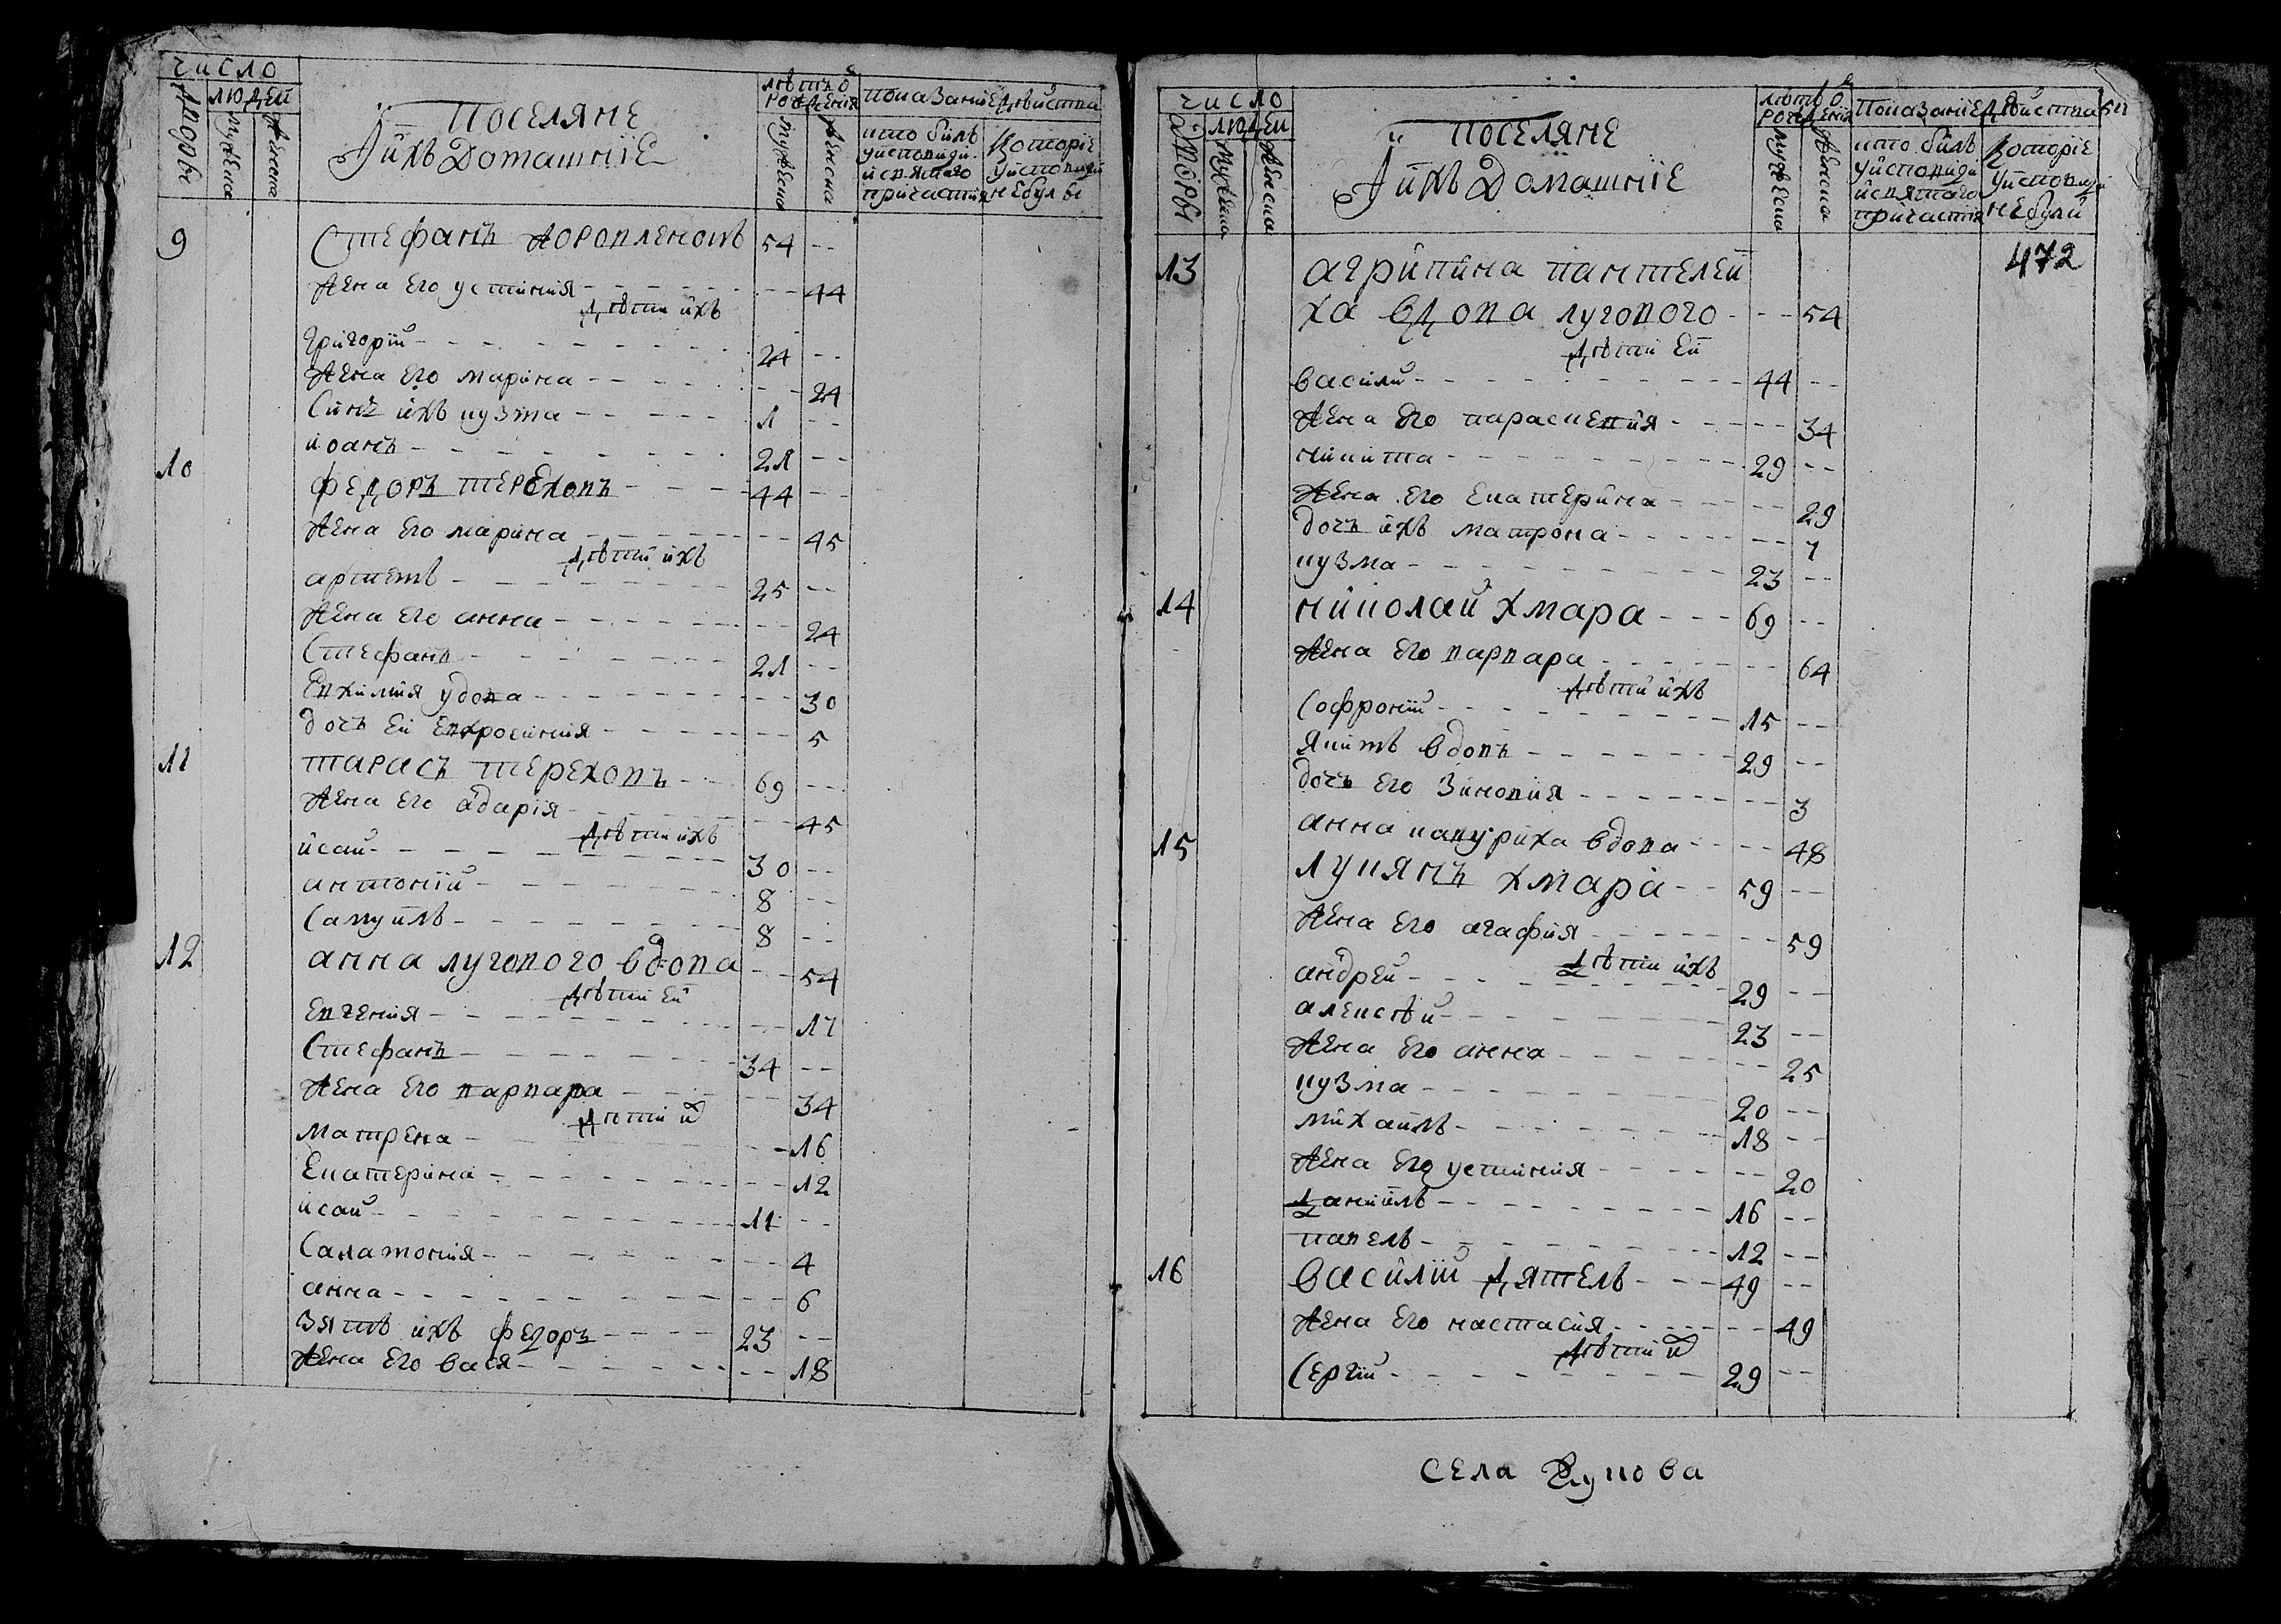 число
людей
дворы
мужеска
женска
поселяне
и ихъ домашніе
лѣтъ о рожденія
мужеска
женска
показаніе дѣйства
кто билъ у исповиди и святаго причастія
которіе у исповиди не були
9 Стефанъ 54 --
жена его устинія - - - 44
дѣти ихъ
григорій - - - 24 --
жена его марина - - - 24
Синъ ихъ кузма - - - 1 --
иоанъ - - - 21 --
10 федоръ тереховъ - - - 44 --
жена его марина - - - 45
дѣти ихъ
артемъ - - - 25 --
жена его анна - - - 24
Стефанъ - - - 21 --
Евхимія удова - - - 30
дочъ ей Евхросинія - - - 5
11 тарасъ тереховъ - - 69 --
жена его дарія - - - 45
дѣти ихъ
исай - - - 30 --
антоній - - - 8 --
Самуилъ - - - 8 --
12 анна лугового вдова -- 54
дѣти ей
Евгенія - - - 17
Стефанъ - - - 34 --
жена его варвара - - - 34
дѣти их
матрена - - - 16
Екатерина - - - 12
исай - - - 11 --
Саламонія - - - 4
анна - - - 6
зять ихъ федоръ - - - 23 --
жена его вася - - - 18
число
людей
дворы
мужеска
женска
поселяне
и ихъ домашніе
лѣтъ о рожденія
мужеска
женска
показаніе дѣйства
кто билъ у исповиди и святаго причастія
которіе у исповиди не були
472
13 агрипина пантелей
ха вдова лугового - - - 54
дѣти ей
василий - - - 44 --
жена его параскевия - - - 34
никита - - - 29 --
жена его Екатерина - - - 29
дочъ ихъ матрона - - - 7
кузма - - - 23 --
14 николай хмара - - - 69 --
жена его варвара - - - 64
дѣти ихъ
Софроній - - - 15 --
якимъ вдовъ - - - 29 --
дочъ его зиновия - - - 3
анна вдова - - - 48
15 лукянъ хмара - - 59 --
жена его агафия - - - 59
дѣти ихъ
андрей - - - 29 --
алексѣй - - - 23 --
жена его анна - - - 25
кузма - - - 20 --
михаилъ - - - 18 --
жена его устинія - - - 20
даниилъ - - - 16 --
павелъ - - - 12 --
16 василій дятелъ - - - 49 --
жена его настасия - - - 49
дѣти их
Сергій - - - 29 --
села